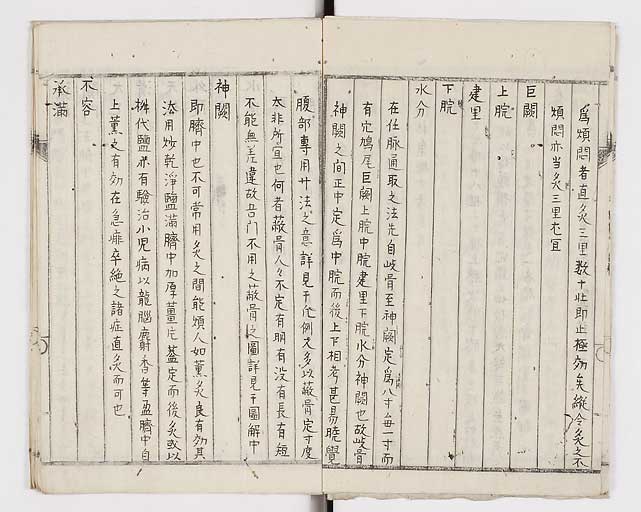 爲煩悶者直灸三里數十壯即止極効矣縱令灸之不
煩悶亦当灸三里尤宜
巨闕
上脘
建里
下脘
水分
在任脉通取之法先自歧骨至神闕定爲八寸每一寸而
有穴鳩尾巨闕上脘中脘建里下脘水分神闕也故歧骨
神闕之间正中定爲中脘而後上下相考甚易曉覺
腹部專用廿法之意詳見于凡例大多以蔽骨定寸度
太非所宜也何者蔽骨人々不定有明有没有長有短
不能無差違故吾门不用之蔽骨之圖詳見于圖解中
神闕
即臍中也不可常用灸之間能煩人如薫灸良有効其
法用炒乾淨鹽滿臍中加厚薑片蓋定而後灸或以
代鹽亦有驗治小児病以龍腦麝香等盈臍中自
上薫之有効在急痱卒絶之諸症直灸而可也
不容
承滿